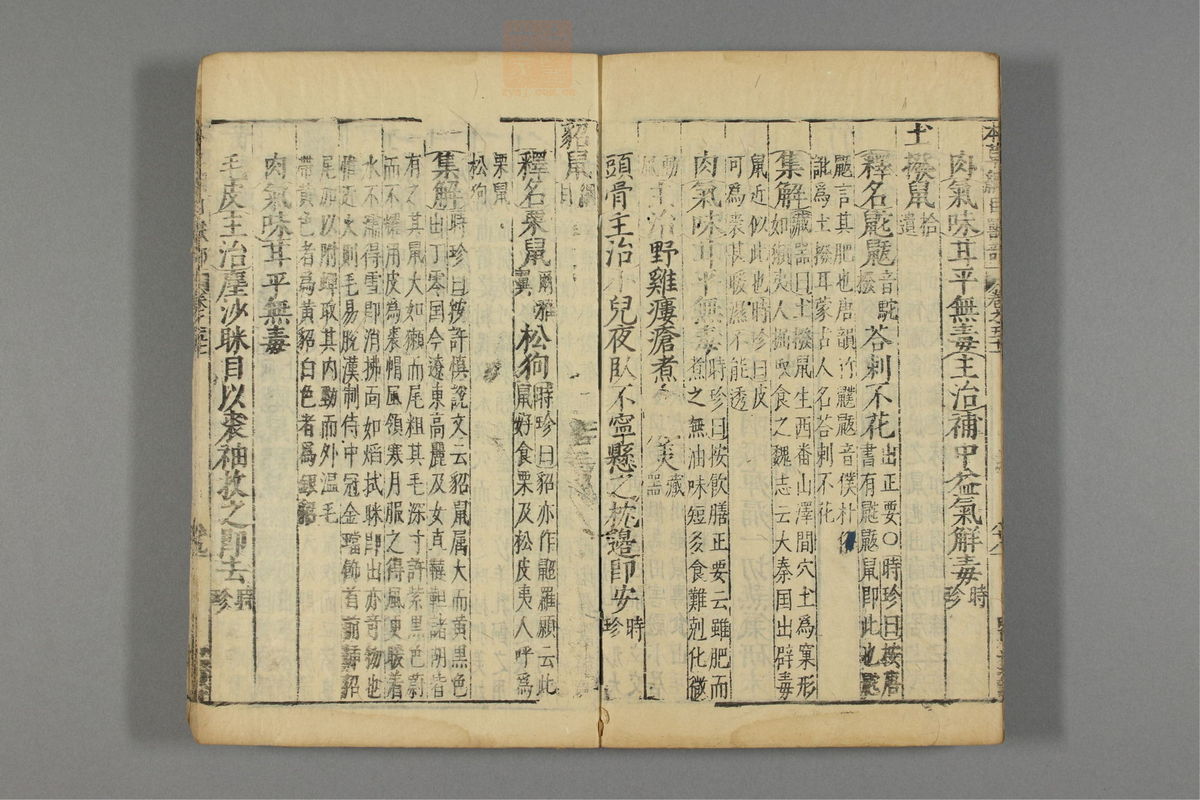 肉氣味甘平無毒主治補中益氣解毒時珍
土撥鼠拾遺
釋名鼧鼥音駝撥荅剌不花出正要〇時珍曰按唐
書有鼧鼥鼠即此也鼧
鼥言其肥也唐韻作鼥音僕朴
訛爲土撥耳蒙古人名荅剌不花
集解藏器曰土撥鼠生西番山澤間穴土爲窠形
如獺夷人掘取食之魏志云大秦国出辟毒
鼠近似此也時珍曰皮
可爲裘甚暖濕不能透
肉氣味甘平無毒時珍曰按飲膳正要云雖肥而
煮之無油味短多食難剋化微
動風主治野雞瘻瘡煮食藏器
頭骨主治小兒夜卧不寧懸之枕邊即安時珍
貂鼠綱目
釋名栗鼠爾雅翼松狗時珍曰貂亦作鼦羅願云此
鼠好食栗及松皮夷人呼爲
栗鼠
松狗
集解時珍曰按許慎說文云貂鼠属大而黄黑色
出丁零国今遼東高麗及女直韃靼諸胡皆
有之其鼠大如獺而尾粗其毛深寸許紫黑色蔚
而不耀用皮爲裘帽風領寒月服之得風更暖着
水不濡得雪即消拂面如焰拭眯即出亦竒物也
惟近火則毛易脫漢制侍中冠金璫飾首前插貂
尾加以附蟬取其内勁而外温毛
帶黄色者爲黄貂白色者爲銀貂
肉氣味甘平無毒
毛皮主治塵沙眯目以裘袖抆之即去時珍